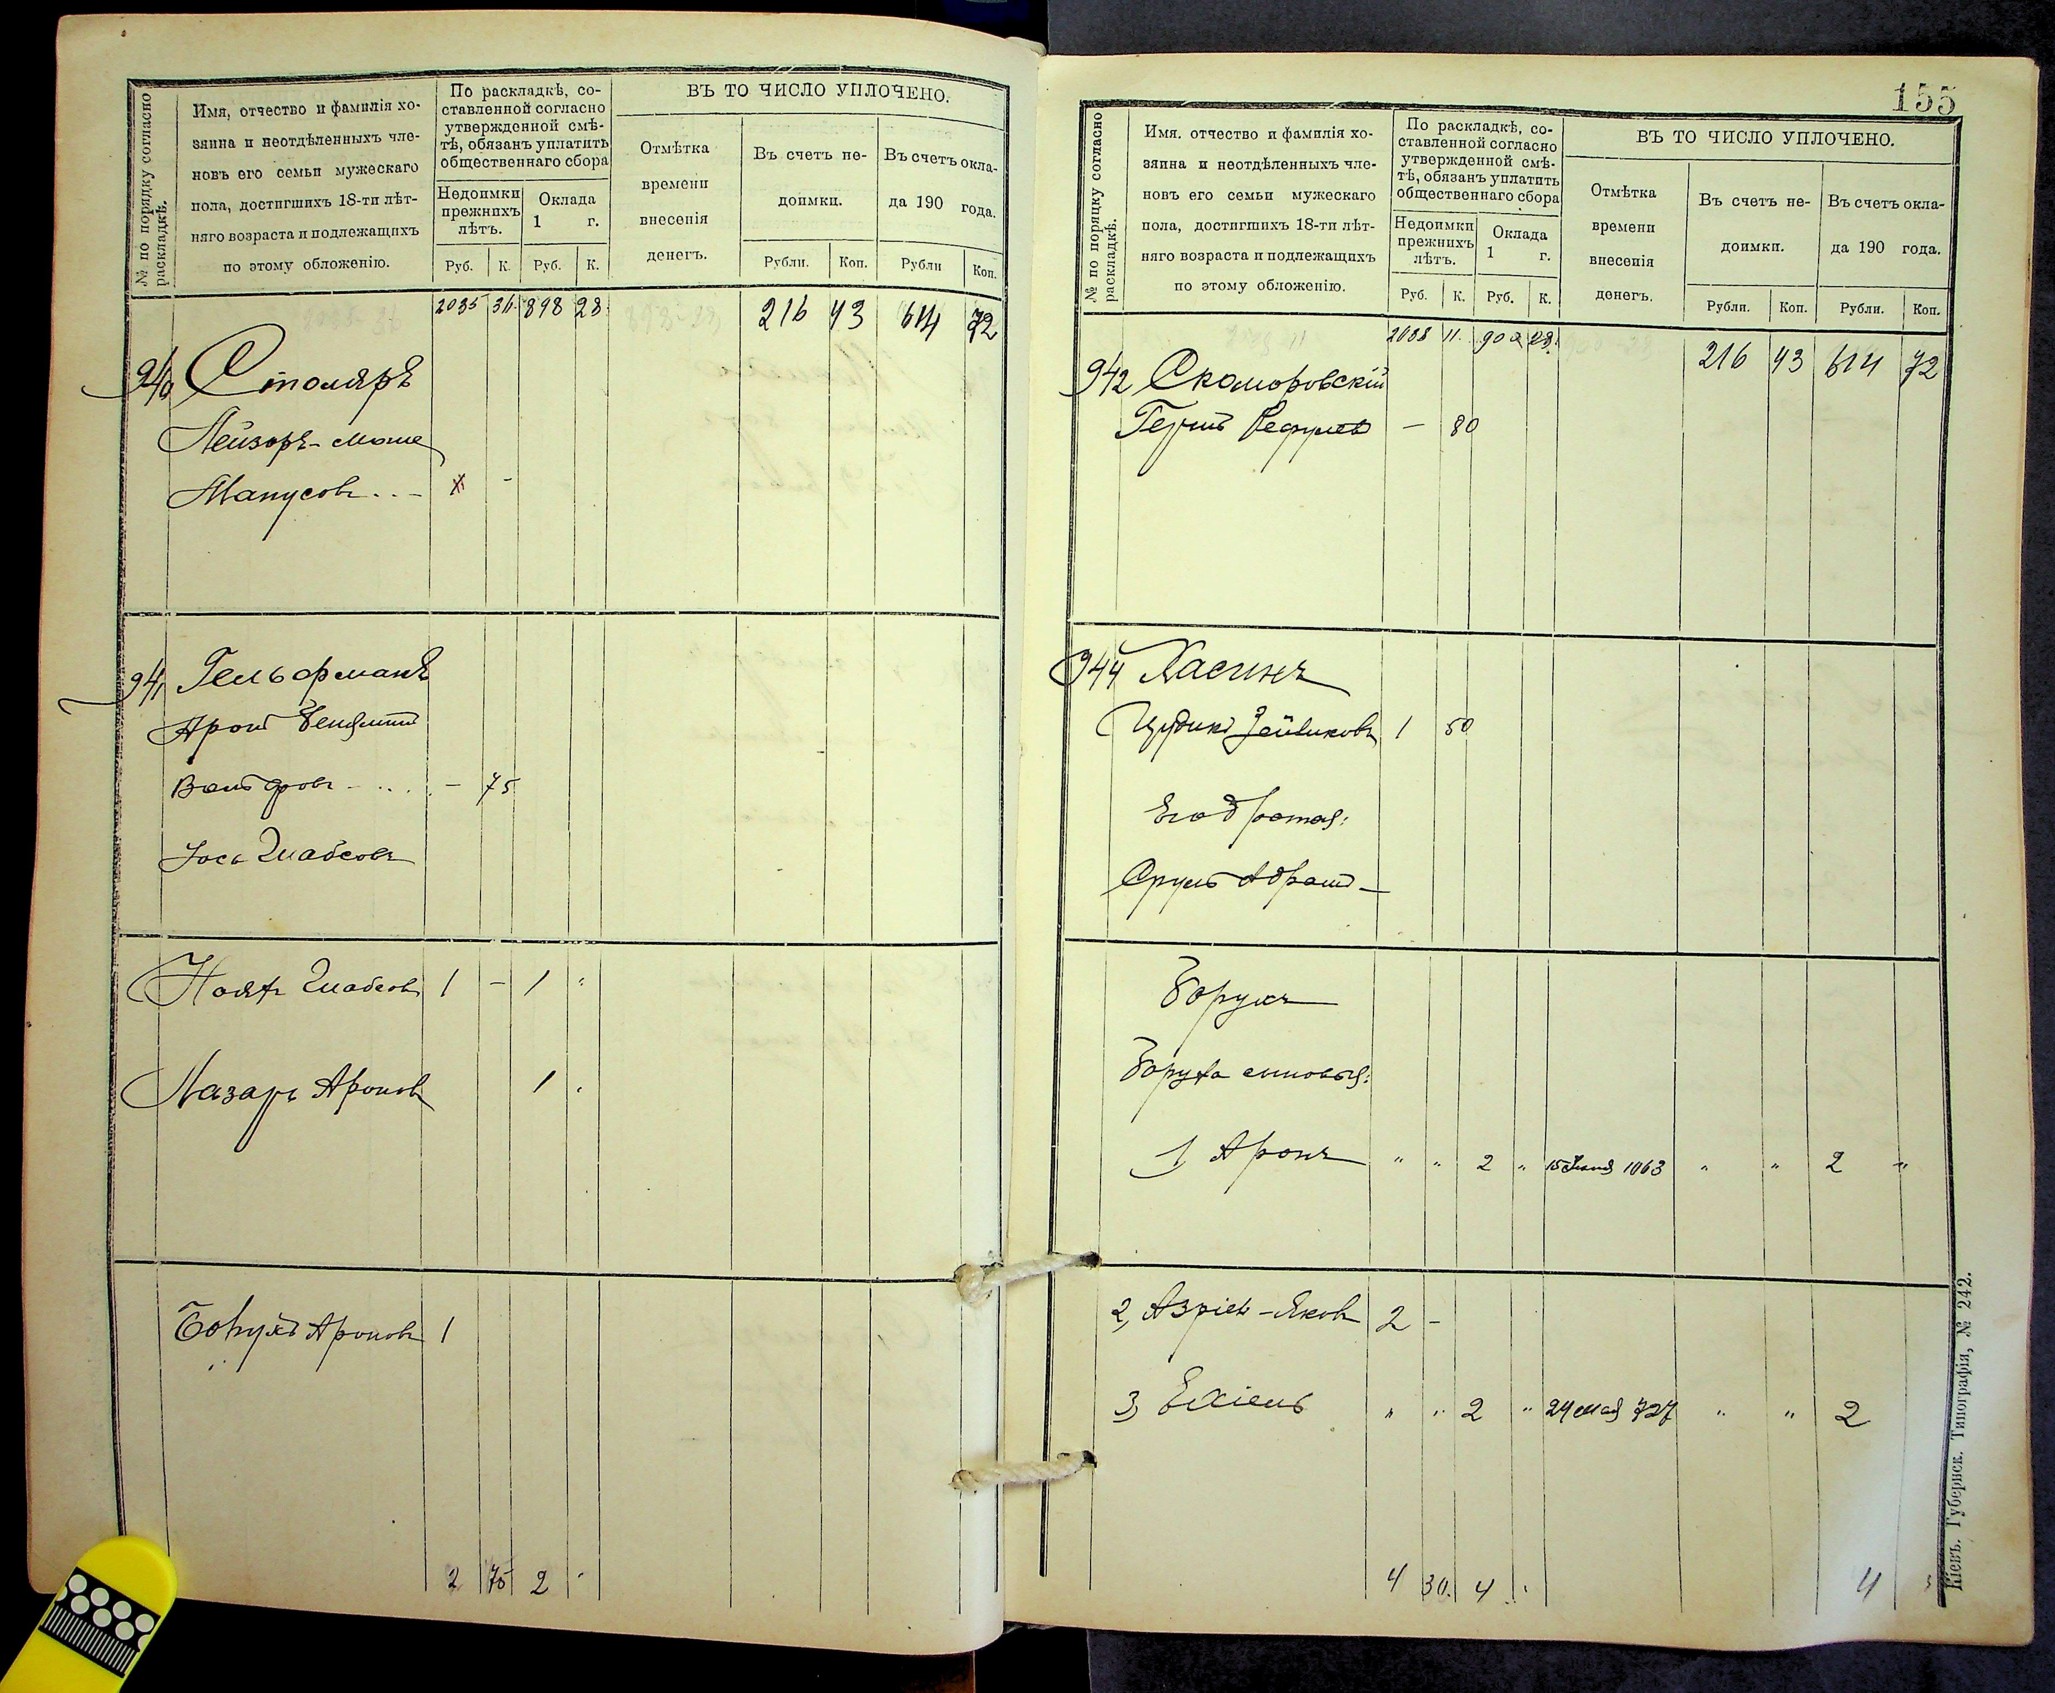 № по порядку согласно раскладкѣ.
Имя, отчество и фамилія хо-
зяина и неотдѣленныхъ чле-
новъ его семьи мужескаго
пола, достигшихъ 18-ти лѣт-
няго возраста и подлежащихъ
по этому обложенію.
По раскладкѣ, со-
ставленной согласно
утвержденной смѣ-
тѣ, обязанъ уплатить
общественнаго сбора
Недоимки
прежнихъ
лѣтъ.
Оклада
1 г.
Руб. К. Руб. К.
ВЪ ТО ЧИСЛО УПЛОЧЕНО.
Отмѣтка
времени
внесенія
денегъ.
Въ счетъ не-
доимки.
Въ счетъ окла-
да 190 года.
Рубли. Коп. Рубли Коп.
2035 36 898 23 216 43 614 72
940 Столяръ
Лейзоръ-Моше
Манусовъ - -
941 Гельфманъ
Аронъ Веніаминъ
Вольфовъ - - 75
Іось
Ноях 1 - 1 "
Лазарь Ароновъ 1 "
Борухъ Ароновъ 1
2 75 2 "
155
№ по порядку согласно раскладкѣ.
Имя. отчество и фамилія хо-
зяина и неотдѣленныхъ чле-
новъ его семьи мужескаго
пола, достигшихъ 18-ти лѣт-
няго возраста и подлежащихъ
по этому обложенію.
По раскладкѣ, со-
ставленной согласно
утвержденной смѣ-
тѣ, обязанъ уплатить
общественнаго сбора
Недоимки
прежнихъ
лѣтъ.
Оклада
1 г.
Руб. К. Руб. К.
ВЪ ТО ЧИСЛО УПЛОЧЕНО.
Отмѣтка
времени
внесенія
денегъ.
Въ счетъ не-
доимки.
Въ счетъ окла-
да 190 года.
Рубли. Коп. Рубли. Коп.
2038 11 900 23 216 43 614 72
942 Скоморовскій
Гершъ - 80
944 Хасинъ
Зейликовъ 1 50
Его братья:
Сруль Абрам -
Борухъ
Боруха сыновья:
1) Аронъ " " 2 " 15 Іюня 1063 " " 2 "
2, Азріель-Яковъ 2 -
3, Ехіель " " 2 " 24 мая 727 " " 2
4 30. 4 " 4 "
Кіевъ. Губернск. Типографія, № 242.